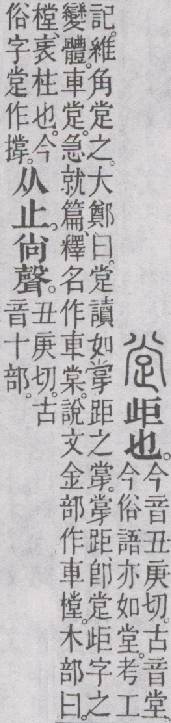 𣥺歫也。
今音丑庚切。古音堂。
今俗語亦如堂。考工
記。維角𣥺之。大鄭曰。𣥺讀如牚距之牚。牚距。卽𣥺歫字之
變體。車𣥺。急就篇。釋名作車棠。說文金部作車樘。木部曰。
樘。衺柱也。今
俗字𣥺作撐。
从止。尙聲。
丑庚切。古
音十部。